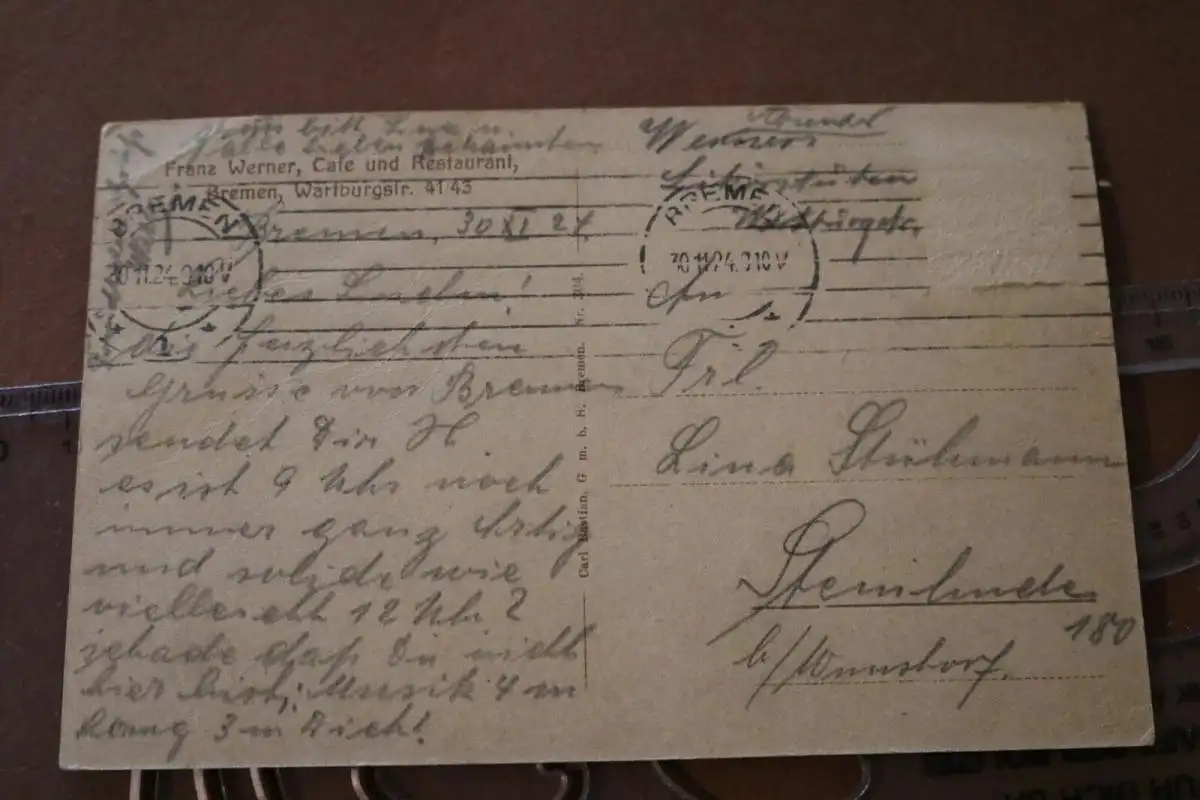 Franz Werner, Cafe und Restaurant,
Bremen, Wartburgstr. 41 43
BREMEN
30.11.24.9-10V
1
Bremen, 30 XI 24
Liebes Linchen!
Die herzlichsten
Grüsse von Bremen
sendet Dir H
es ist 9 Uhr noch
immer ganz Artig
und solide wie
vielleicht 12 Uhr?
schade daß Du nicht
hier bist; Musik 4 m
lang 3 m Dick!
Carl Bastian, G. m. b. H. Bremen. Nr. 304.
Absender
Werners
Wartburgstr.
BREMEN
30.11.24.9-10V
An
Frl.
Lina Stühmann
Steinhude
180
b/Wunstorf.